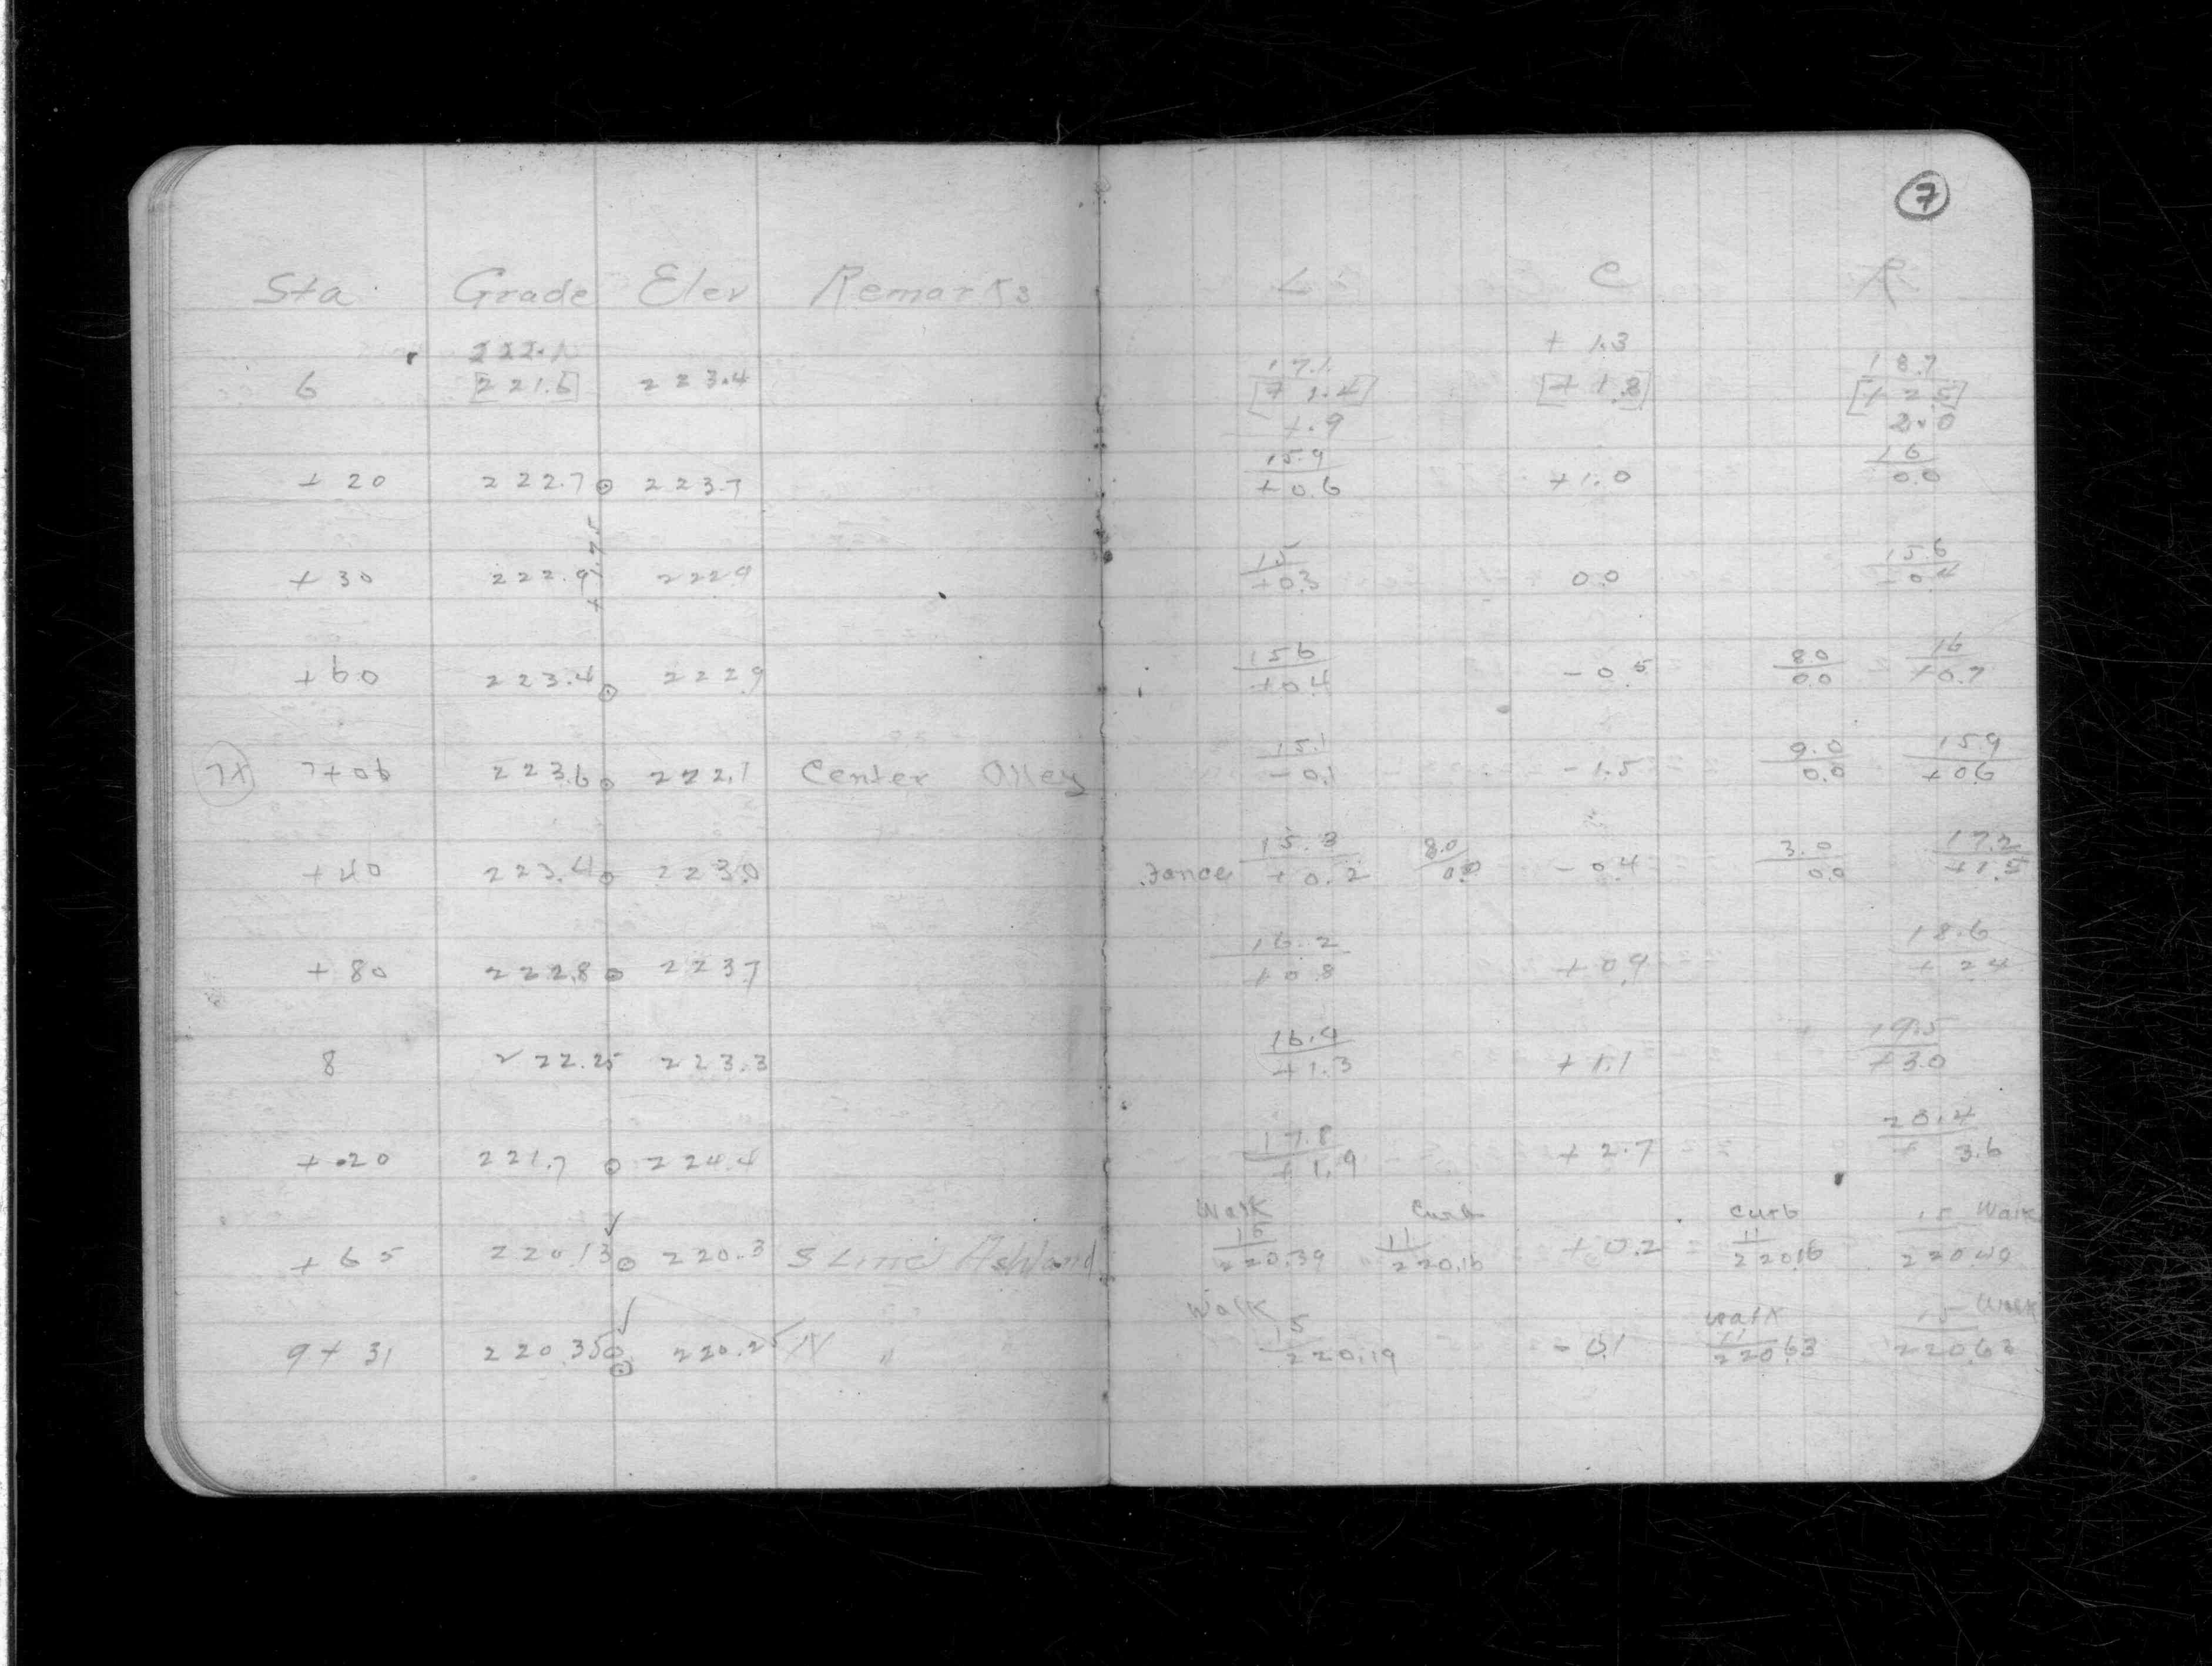 7
Sta. Grade Elev Remarks L C R
222.1 + 1.3
17.1 18.7
6 [221.6] 223.4 [+ 1.4] [+ 1.8] [+ 2.5]
+.9 2.0
15.9 16
+ 20 222.7 223.7 + 0.6 + 1.0 0.0
15 15.6
+ 30 222.9 222.9 + 0.3 0.0 - 0.4
15.6 8.0 16
+ 60 223.4 222.9 + 0.4 - 0.5 0.0 + 0.7
15.1 9.0 15.9
7+06 223.6 222.1 Center Alley - 0.1 - 1.5 0.0 + 0.6
15.3 8.0 3.0 17.2
+ 40 223.4 223.0 fence + 0.2 0.0 - 0.4 0.0 + 1.5
16.2 18.6
+ 80 222.8 223.7 + 0.8 + 0.9 + 2.4
16.4 19.5
8 222.25 223.3 + 1.3 + 1.1 + 3.0
17.8 20.4
+ 20 221.7 224.4 + 1.9 + 2.7 + 3.6
Walk Curb Curb 15 Walk
11 11
+ 65 220.13 220.3 S Line Ashland 220.39 220.16 + 0.2 220.16 220.40
Walk Walk 15 Walk
15 11
9 + 31 220.35 220.25 N " 220.19 - 0.1 220.63 220.63